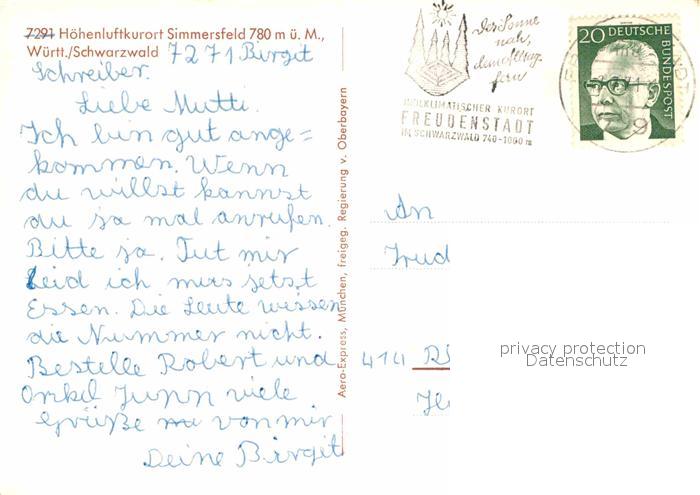 7291 Höhenluftkurort Simmersfeld 780 m ü. M.,
Württ./Schwarzwald 7271 Birgit
Schreiber.
Liebe Mutti.
Ich bin gut ange=
kommen. Wenn
du willst kannst
du ja mal anrufen.
Bitte ja. Tut mir
Leid ich mus jetst
Essen. Die Leute wissen
die Nummer nicht.
Bestelle Robert und
Onkel Jupp viele
Grüße von mir
Deine Birgit
Aero-Express, München, freigeg. Regierung v. Oberbayern
Der Sonne
nah,
dem Alltag
fern
HEILKLIMATISCHER KURORT
FREUDENSTADT
IM SCHWARZWALD 740-1000 m
20 DEUTSCHE
BUNDESPOST
An
Trud
414
privacy protection
Datenschutz